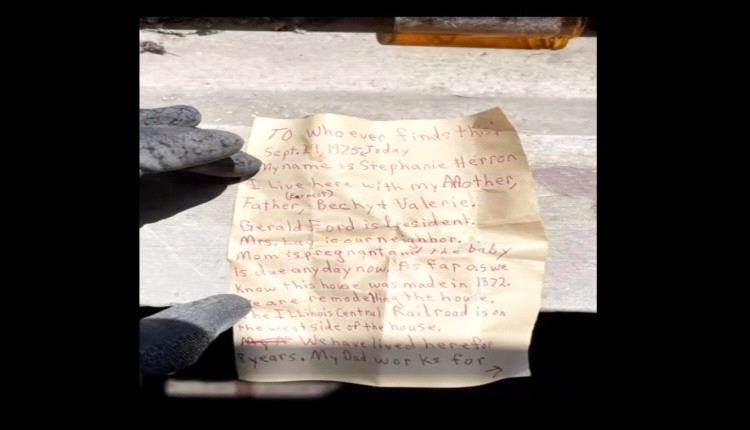 TO whoever finds this!
Sept. 29, 1975, Today
My name is Stephanie Herron
I Live here with my Mother,
(Earnest)
Father, Becky + Valerie.
Gerald Ford is President.
Mrs. Lay is our neighbor.
Mom is pregnant and the baby
is due any day now. As far as we
know this house was made in 1872.
We are remodelling the house.
The ILLinois Central Railroad is on
the west side of the house.
We have lived here for
8 years. My Dad works for →